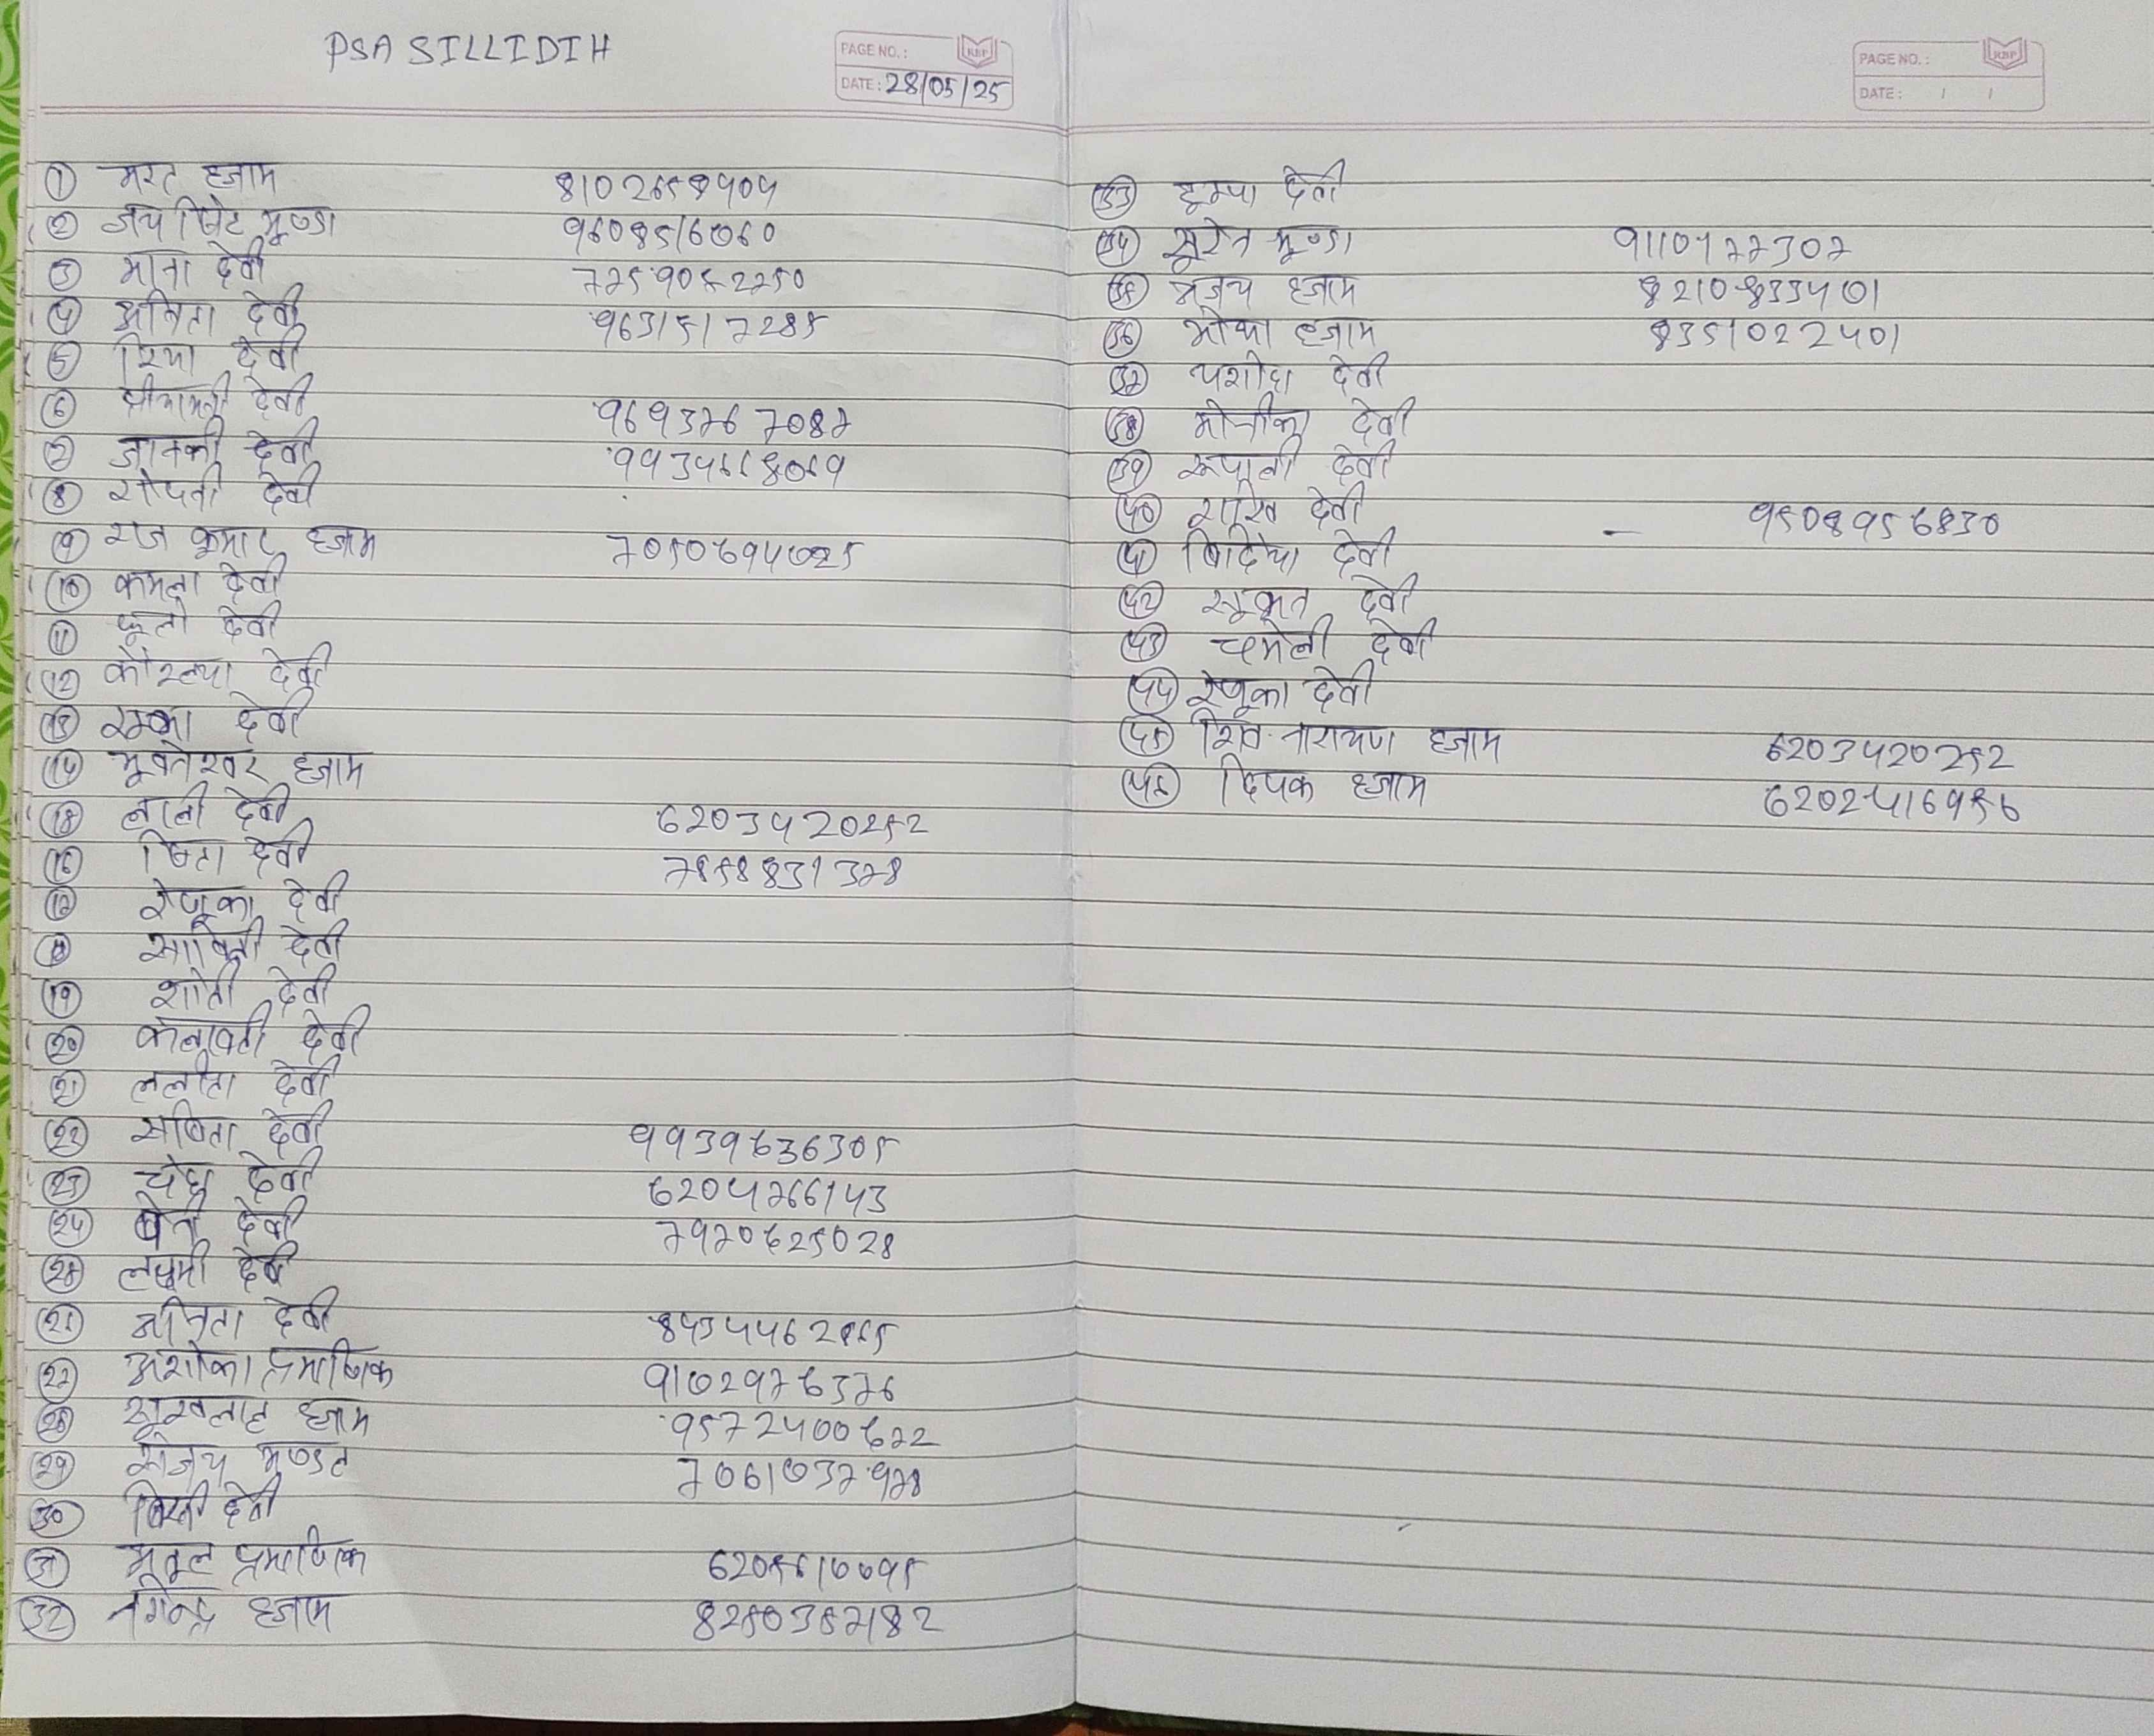 PSA SILLIDIH
PAGE NO.:
DATE: 28/05/25
① भरत हजाम 8102658404
② जय सिंह मुण्डा 9608516060
③ माना देवी 7259052250
④ अनिता देवी 9631517285
⑤ रिया देवी
⑥ श्रीमती देवी 9693767087
⑦ जानकी देवी 9934668069
⑧ देवी
⑨ राज कुमार हजाम 7050694025
⑩ कमला देवी
⑪ फूलो देवी
⑫ कौशल्या देवी
⑬ देवी
⑭ भूवनेश्वर हजाम
⑮ लाली देवी 6203420252
⑯ देवी 7858831378
⑰ रेणूका देवी
⑱ सावित्री देवी
⑲ शांती देवी
⑳ कलावती देवी
㉑ ललीता देवी
㉒ सबिता देवी 9939636305
㉓ चंदा देवी 6204766143
㉔ देवी 7970625028
㉕ लक्ष्मी देवी
㉖ देवी
㉗ अशोका प्रमाणिक 9102976376
㉘ सूखलाल हजाम 9572400622
㉙ संजय मुण्डा 7061037978
㉚ देवी
㉛ प्रमाणिक
㉜ नगेन्द्र हजाम
PAGE NO.:
DATE: / /
㉝ देवी
㉞ सूरेन मुण्डा 9110177307
㉟ अजय हजाम 8210833401
㊱ हजाम 8351022401
㊲ यशोदा देवी
㊳ मोनीका देवी
㊴ रूपाली देवी
㊵ देवी - 9508956830
㊶ बिंदिया देवी
㊷ देवी
㊸ चमेली देवी
㊹ रेणूका देवी
㊺ शिव नारायण हजाम 6203420252
㊻ दिपक हजाम 6202416956